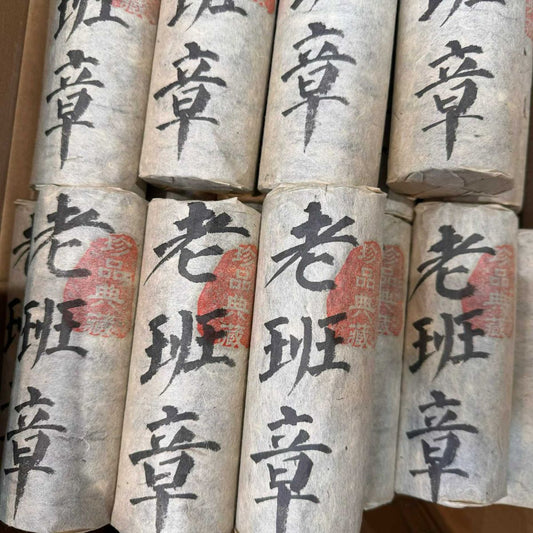 班章
班章
班章
班章
老班章
珍品典藏
老班章
珍品典藏
老班章
珍品典藏
老班章
珍品典藏